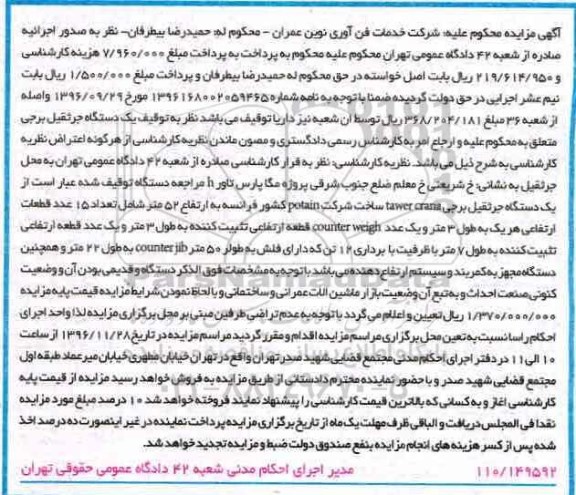 آگهی مزایده محکوم علیه: شرکت خدمات فن آوری نوین عمران - محکوم له: حمیدرضا بیطرفان- نظر به صدور اجرائیه
صادره از شعبه ۴۲ دادگاه عمومی تهران محکوم علیه محکوم به پرداخت به پرداخت مبلغ ۷/۹۶۰/۰۰۰ هزینه کارشناسی
و ۲۱۹/۶۱۴/۹۵۰ ریال بابت اصل خواسته در حق محکوم له حمیدرضا بیطرفان و پرداخت مبلغ ۱/۵۰۰/۰۰۰ ریال بابت
نیم عشر اجرایی در حق دولت گردیده ضمنا با توجه به نامه شماره ۱۳۹۶۱۶۸۰۰۲۰۵۹۴۶۵ مورخ ۱۳۹۶/۰۹/۲۹ واصله
از شعبه ۳۶ مبلغ ۳۶۸/۲۰۴/۱۸۱ ریال توسط آن شعبه نیز داریا توقیف می باشد نظر به توقیف یک دستگاه جرثقیل برجی
متعلق به محکوم علیه و ارجاع امر به کارشناس رسمی دادگستری و مصون ماندن نظریه کارشناسی از هرگونه اعتراض نظریه
کارشناسی به شرح ذیل می باشد. نظریه کارشناسی: نظر به قرار کارشناسی صادره از شعبه ۴۲ دادگاه عمومی تهران به محل
جرثقیل به نشانی: خ شریعتی خ معلم ضلع جنوب شرقی پروژه مگا پارس تاور h مراجعه دستگاه توقیف شده عبار است از
یک دستگاه جرثقیل برجی tawer crana ساخت شرکت potain کشور فرانسه به ارتفاع ۵۲ متر شامل تعداد ۱۵ عدد قطعات
ارتفاعی هر یک به طول ۳ متر و یک عدد counter weigh قطعه ارتفاعی تثبیت کننده به طول ۳ متر و یک عدد قطعه ارتفاعی
تثبیت کننده به طول ۷ متر با ظرفیت با برداری ۱۲ تن که دارای فلش به طولر ۵۰ متر counter jib به طول ۲۲ متر و همچنین
دستگاه مجهز به کمربند و سیستم ارتفاع دهنده می باشد با توجه به مشخصات فوق الذکر دستگاه و قدیمی بودن آن و وضعیت
کنونی صنعت احداث و به تبع آن وضعیت بازار ماشین الات عمرانی و ساختمانی و با لحاظ نمودن شرایط مزایده قیمت پایه مزایده
۱/۳۷۰/۰۰۰/۰۰۰ ریال تعیین و اعلام می گردد با توجه به عدم تراضی طرفین مبنی بر محل برگزاری مزایده لذا واحد اجرای
احکام راسا نسبت به تعین محل برگزاری مراسم مزایده اقدام و مقرر گردید مراسم مزایده در تاریخ ۱۳۹۶/۱۱/۲۸ از ساعت
۱۰ الی ۱۱ در دفتر اجرای احکام مدنی مجتمع قضایی شهید صدر تهران واقع در تهران خیابان مطهری خیابان میرعماد طبقه اول
مجتمع قضایی شهید صدر و با حضور نماینده محترم دادستانی از طریق مزایده به فروش خواهد رسید مزایده از قیمت پایه
کارشناسی آغاز و به کسانی که بالاترین قیمت کارشناسی را پیشنهاد نمایند فروخته خواهد شد ۱۰ درصد مبلغ مورد مزایده
نقدا فی المجلس دریافت و الباقی ظرف مهلت یک ماه از تاریخ برگزاری مزایده پرداخت نماینده در غیر اینصورت ده درصد اخذ
شده پس از کسر هزینه های انجام مزایده بنفع صندوق دولت ضبط و مزایده تجدید خواهد شد.
۱۱۰/۱۴۹۵۹۲ مدیر اجرای احکام مدنی شعبه ۴۲ دادگاه عمومی حقوقی تهران